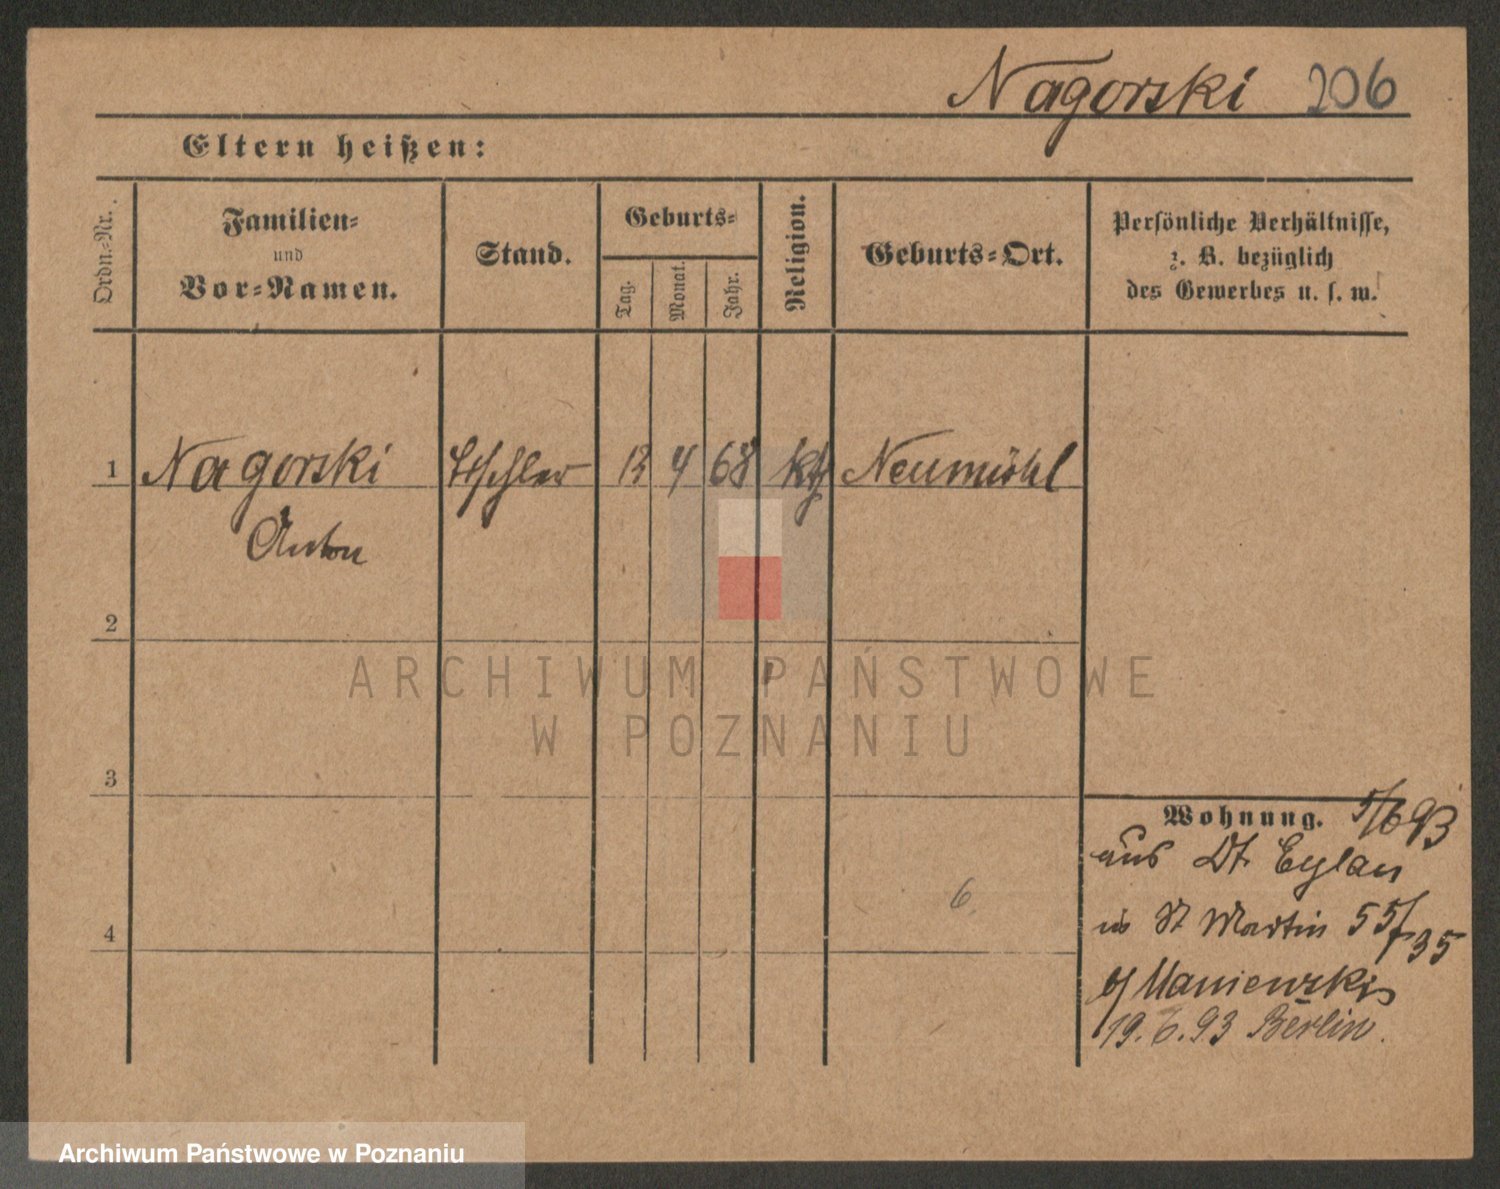 Nagorski 206
Eltern heißen:
Ordn.-Nr.
Familien-
und
Vor-Namen.
Stand.
Geburts-
Tag.
Monat.
Jahr.
Religion.
Geburts-Ort.
Persönliche Verhältnisse,
z. B. bezüglich
des Gewerbes u. s. w.
1 Nagorski Tischler 13 4 68 kth Neumühl
Anton
2
3
4
6
Wohnung. 5/6 93
aus Dt. Eylau
in St Martin 55/
35
b/ Maniewski
19.6.93 Berlin.
ARCHIWUM PAŃSTWOWE
W POZNANIU
Archiwum Państwowe w Poznaniu